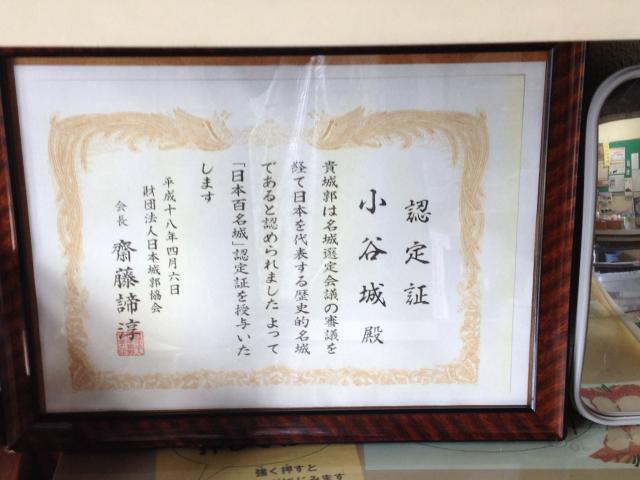 認定証
小谷城 殿
貴城郭は名城選定会議の審議を
経て日本を代表する歴史的名城
であると認められました よって
「日本百名城」認定証を授与いた
します
平成十八年四月六日
財団法人日本城郭協会
会長 齋藤諦淳
強く押すと
にじみます